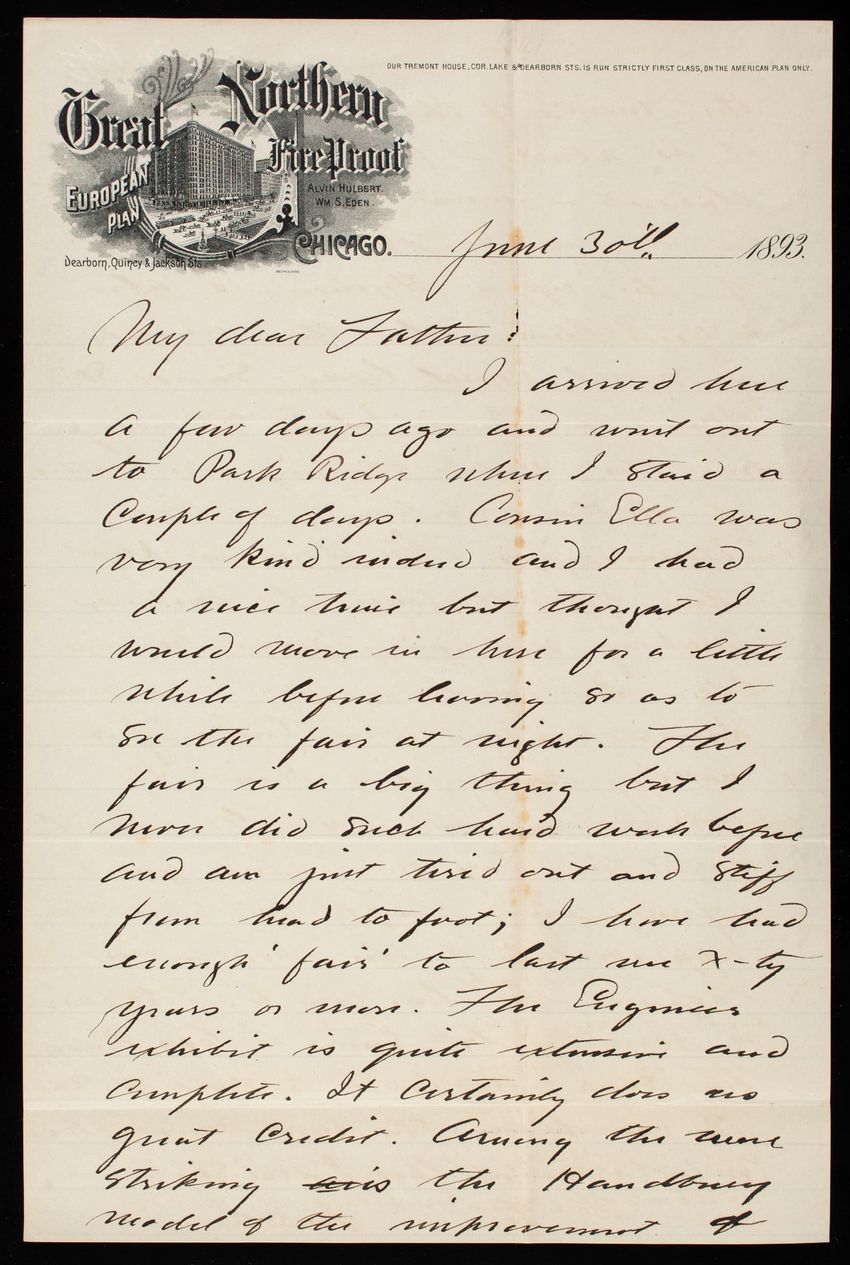 OUR TREMONT HOUSE, COR. LAKE & DEARBORN STS. IS RUN STRICTLY FIRST CLASS, ON THE AMERICAN PLAN ONLY.
Great Northern
Fire Proof
EUROPEAN PLAN
ALVIN HULBERT.
WM S. EDEN
CHICAGO. June 30th. 1893.
Dearborn, Quincy & Jackson Sts.
My dear Father:
I arrived here
a few days ago and went out
to Park Ridge where I staid a
Couple of days. Cousin Ella was
very kind indeed and I had
a nice time but thought I
would move in here for a little
while before leaving so as to
see the fair at night. The
fair is a big thing but I
never did such hard work before
and am just tired out and stiff
from head to foot; I have had
enough 'fair' to last me X-ty
years or more. The Engineer
exhibit is quite extensive and
complete. It certainly does us
great credit. Among the more
striking is the Handbury
model of the improvement of